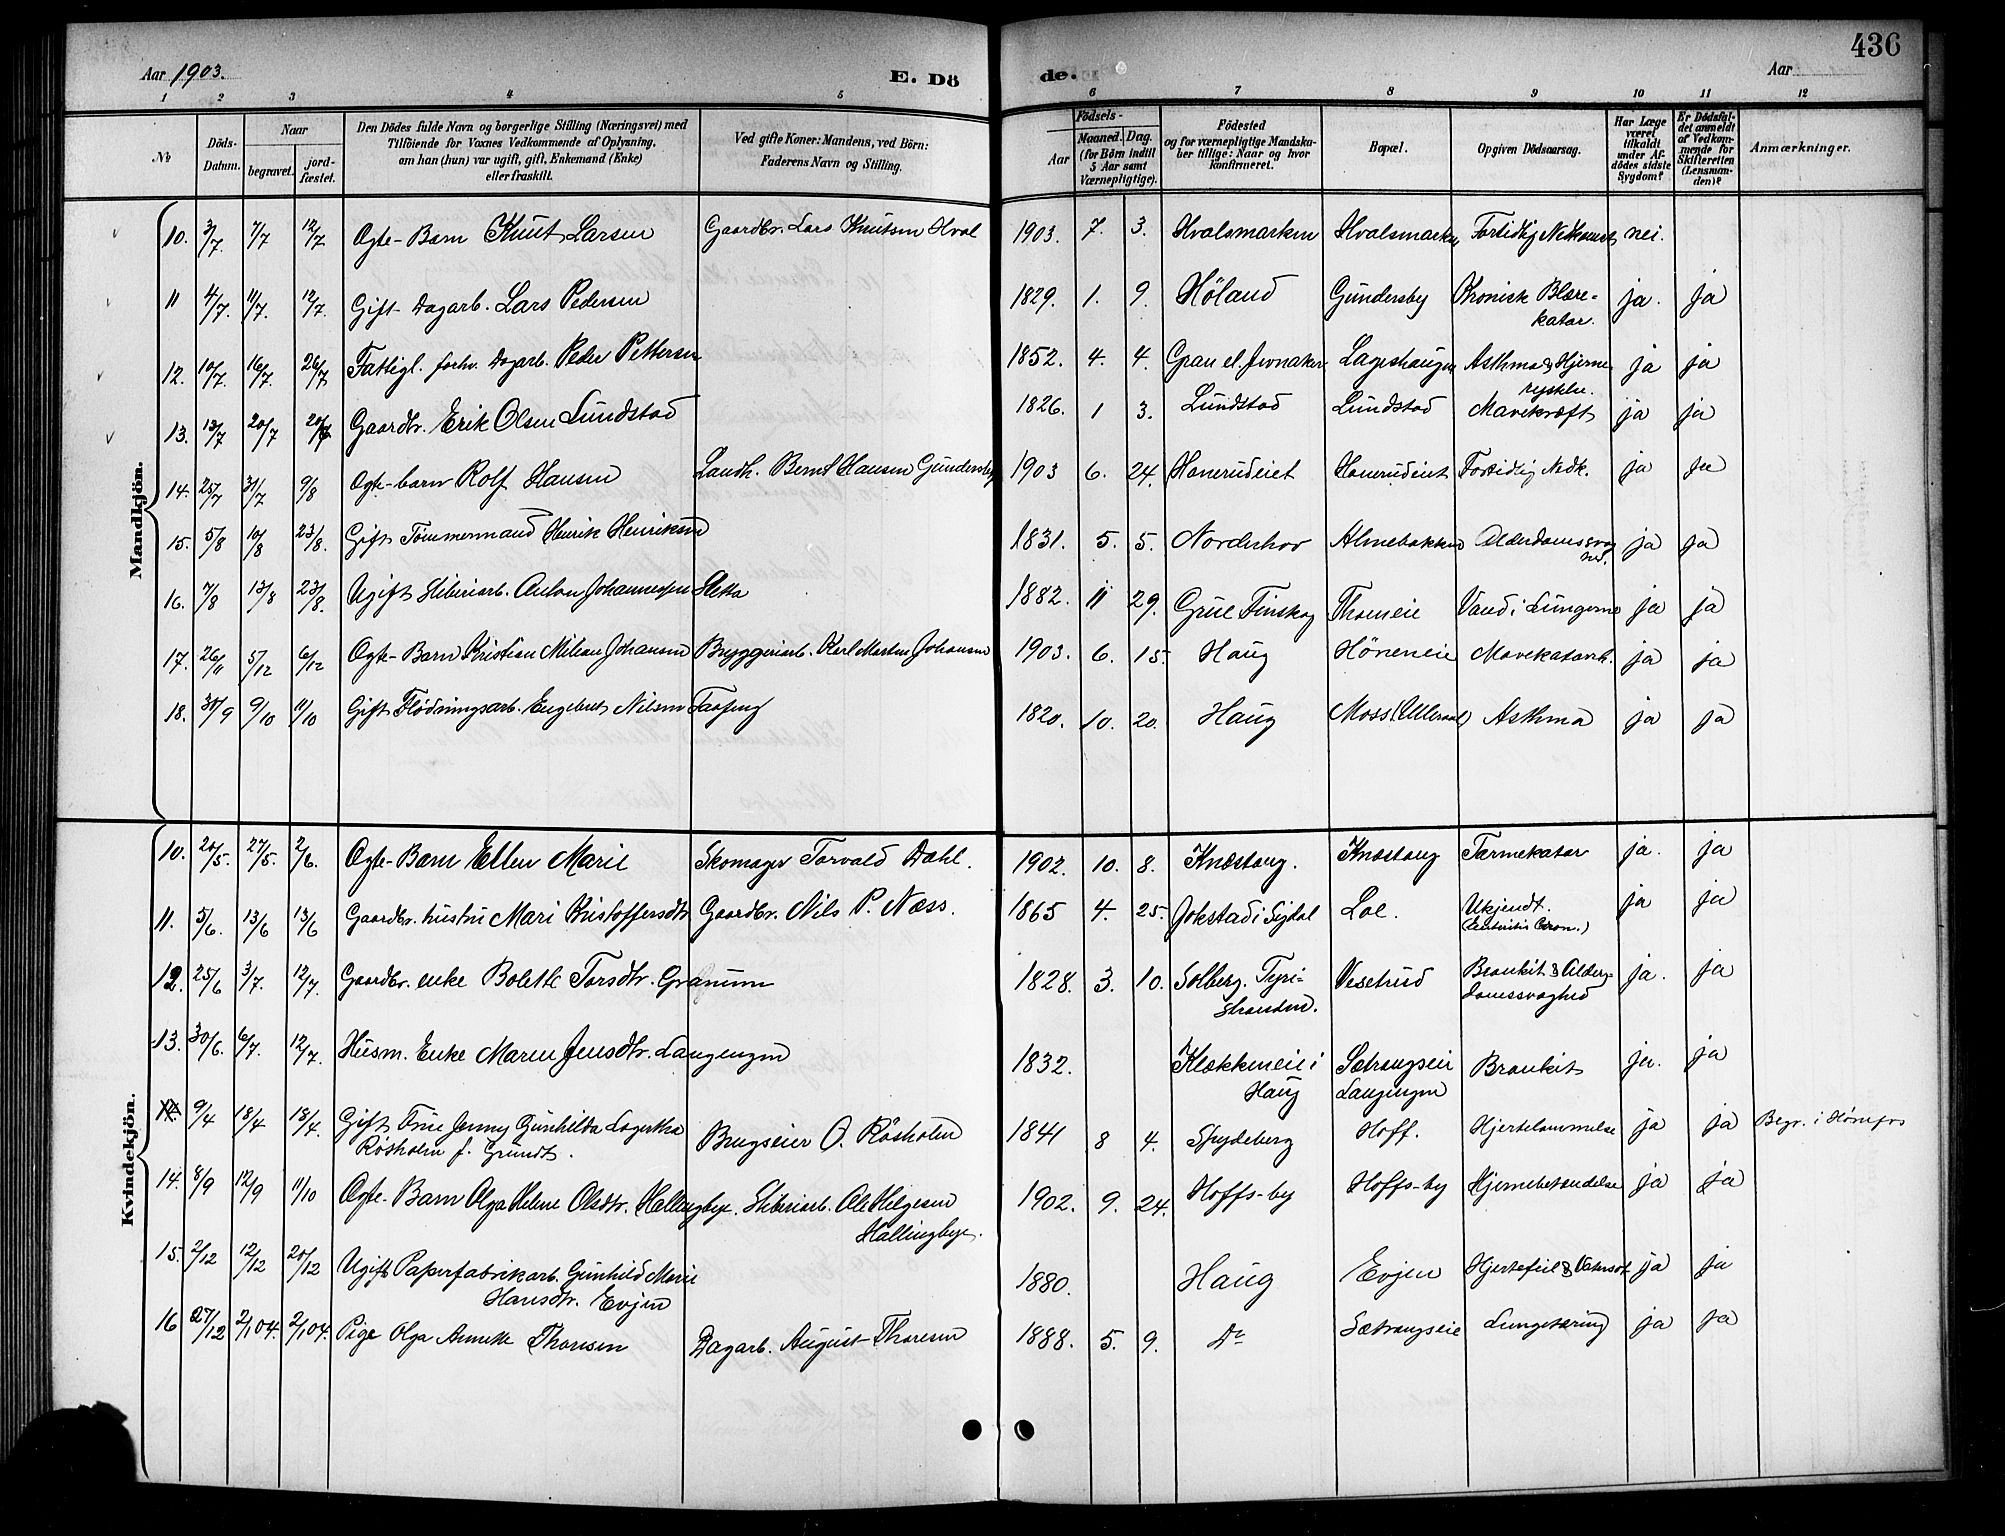 436
Aar 1903.
E. Döde.
Aar
1 2 3 4 5 6 7 8 9 10 11 12
No
Döds-Datum.
Naar
begravet.
jordfæstet.
Den Dödes fulde Navn og borgerlige Stilling (Næringsvei) med
Tilföiende for Voxnes Vedkommende af Oplysning,
om han (hun) var ugift, gift, Enkemand (Enke)
eller fraskilt.
Ved gifte Koner: Mandens, ved Börn:
Faderens Navn og Stilling.
Födsels-
Aar
Maaned. Dag.
(for Börn indtil
5 Aar samt
Værnepligtige).
Födested
og for værnepligtige Mandska-
ber tillige: Naar og hvor
konfirmeret.
Bopæl.
Opgiven Dödsaarsag.
Har Læge
været
tilkaldt
under Af-
dödes sidste
Sygdom?
Er Dödsfal-
det anmeldt
af Vedkom-
mende for
Skifteretten
(Lensman-
den)?
Anmærkninger.
Mandkjön.
10. 3/7 7/7 12/7 Ægte-Barn Knut Larsen Gaardbr. Lars Knutsen Hval 1903. 7. 3. Hvalsmarken Hvalsmarken Fortidlig Nedkomst nei.
11 4/7. 11/7. 12/7. Gift Dagarb. Lars Pedersen 1829. 1. 9. Höland Gundersby Kronisk Blære-
katar. ja. ja
12. 10/7. 16/7. 26/7 Fattigl. forhv. Dagarb. Peder Pettersen 1852. 4. 4. Gran el. Jevnaker Lageshaugen Asthma & Hjerne
rystelse. ja ja
13. 13/7 20/7 20/7 Gaardbr. Erik Olsen Lundstad 1826. 1 3. Lundstad Lundstad Mavekræft ja ja
14. 25/7 31/7 9/8 Ægte-barn Rolf Hansen Landh. Bernt Hansen Gundersby 1903 6. 24. Honerudeiet Honerudeiet Fortidlig Nedk. ja ja
15. 5/8 10/8 23/8. Gift Tömmermand Henrik Henriksen 1831. 5. 5. Norderhov Almebakken Alderdomssvag
hed. ja ja
16. 7/8 13/8 23/8. Ugift Sliberiarb. Anton Johannessen Sletta 1882. 11 29. Grue Finskog Thoneie Vand i Lungerne ja ja
17. 26/11 5/12 6/12 Ægte-Barn Kristian Milian Johansen Bryggeriarb. Karl Martin Johansen 1903. 6. 15. Haug Höneneie Mavekatarrh. ja ja
18. 30/9 9/10 11/10 Gift Flödningsarb. Engebret Nilsen 1820. 10. 20. Haug Moss (Ulleraal) Asthma ja ja
Kvindekjön.
10. 20/5. 27/5. 2/6. Ægte-Barn Ellen Marie Skomager Torvald Dahl. 1902. 10. 8. Knæstang. Knæstang Tarmekatar ja. ja
11. 5/6. 13/6 13/6 Gaardbr. hustru Mari Kristoffersdtr Gaardbr. Nils P. Næss. 1865 4. 25. Jokstad i Sigdal Loe. Ukjendt. ja ja
12. 25/6 3/7. 12/7. Gaardbr. enke Bolette Torsdtr. Granum 1828. 3. 10. Solberg. Tyri-
stranden. Vesetrud Bronkit & Alder-
domssvaghed ja. ja
13. 30/6. 6/7. 12/7. Husm. Enke Maren Jensdtr. Langengen 1832. Klækkeneie i
Haug Sætrangseie
Langengen Bronkit ja. ja
9/4 18/4 18/4. Gift Frue Jenny Gunhilda Lagertha
Rösholm f. Grundt. Brugseier O. Rösholm 1841 8 4. Spydeberg Hoff. Hjertelammelse ja ja Begr. i Hönefos
14. 8/9 12/9 11/10 Ægte-Barn Olga Helene Olsdtr. Hallingbye. Sliberiarb. Ole Helgesen
Hallingbye. 1902. 9. 24. Hoffs-by Hoffs-by Hjernebetændelse ja ja
15. 2/12 12/12 20/12 Ugift Papirfabrikarb. Gunhild Marie
Hansdtr. Evjen 1880. Haug Evjen Hjertefeil & Vatersot ja ja
16 27/12 2/1 04. 2/1 04. Pige Olga Annette Thoresen Dagarb. August Thoresen 1888. 5. 9. Do Sætrangseie Lungetæring ja ja